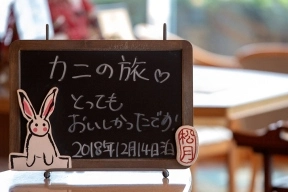 カニの旅♡
とっても
おいしかったでか
2018年12月14日
松月